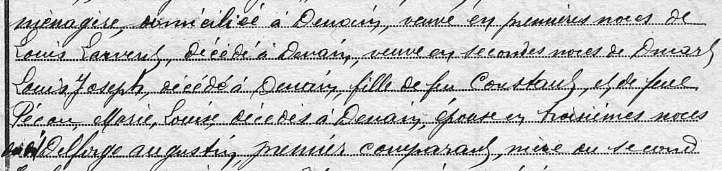 ménagère, domiciliée à Denain, veuve en premières noces de
Louis Larvent, décédé à Denain, veuve en secondes noces de Druart
Louis Joseph, décédé à Denain, fille de feu Constant, et de feue
Pécou, Marie, Louise, décédés à Denain, épouse en troisièmes noces
Delforge augustin, premier comparant, mère du second